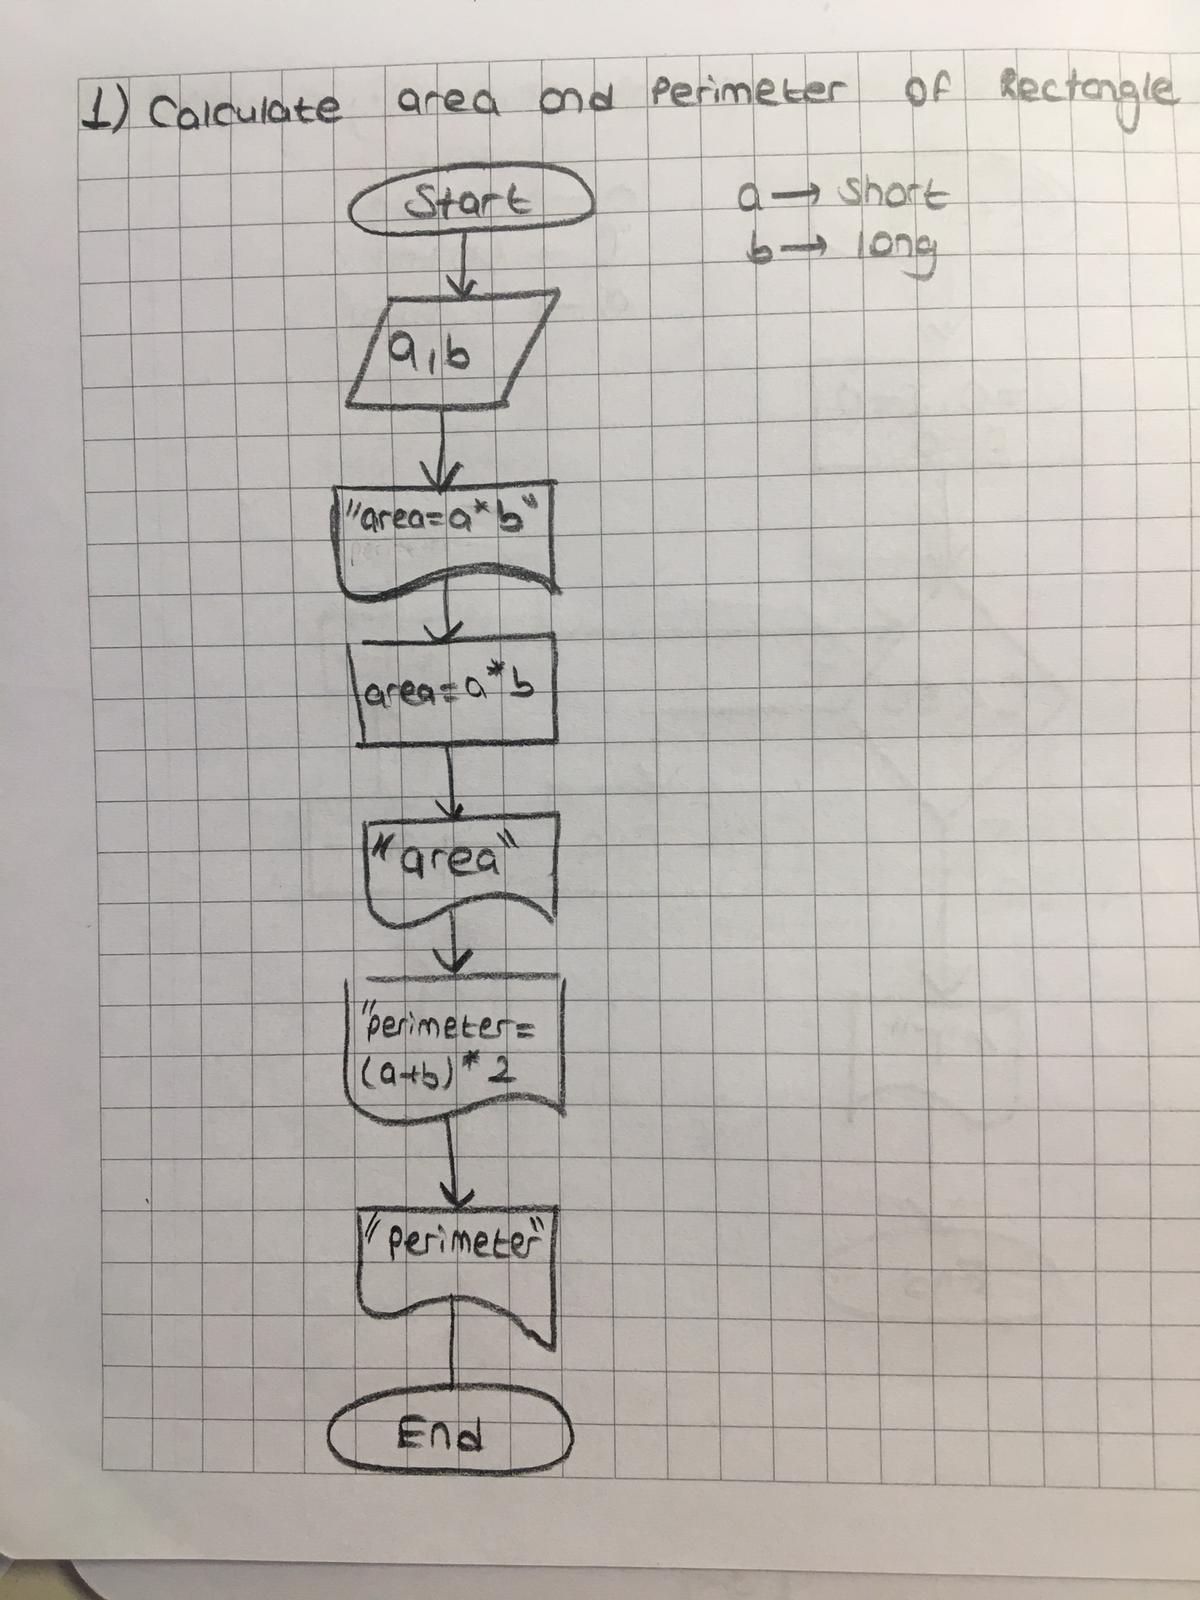 1) Calculate area and Perimeter of Rectangle
Start
a → short
b → long
a, b
"area=a*b"
area=a*b
"area"
"perimeter=
(a+b)*2
"perimeter"
End